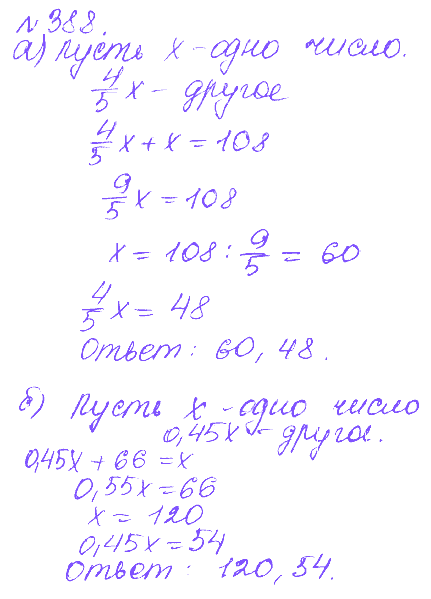 № 388.
а) Пусть x - одно число.
4/5 x - другое
4/5 x + x = 108
9/5 x = 108
x = 108 : 9/5 = 60
4/5 x = 48
Ответ: 60, 48.
б) Пусть x - одно число
0,45x - другое.
0,45x + 66 = x
0,55x = 66
x = 120
0,45x = 54
Ответ: 120, 54.